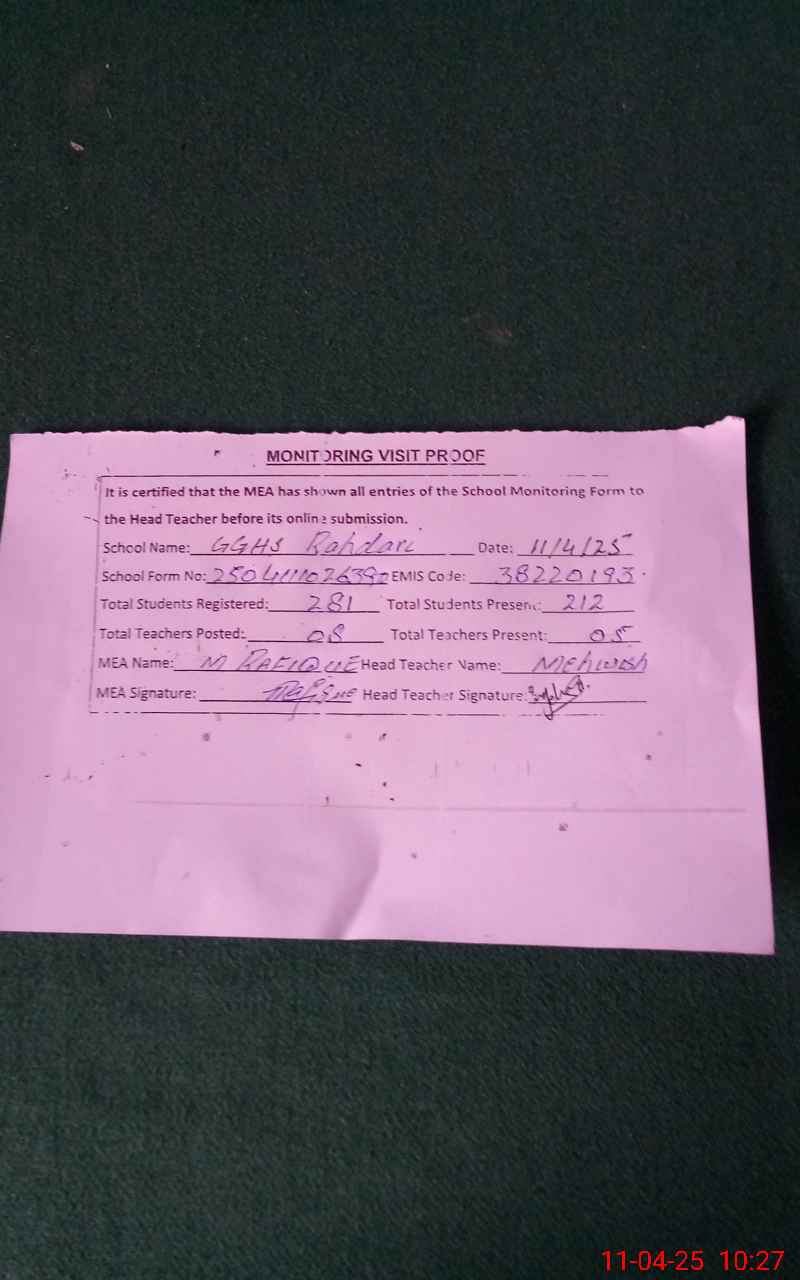 MONITORING VISIT PROOF
It is certified that the MEA has shown all entries of the School Monitoring Form to
the Head Teacher before its online submission.
School Name: GGHS Rahdari Date: 11/4/25
School Form No: EMIS Code: 38220193
Total Students Registered: 281 Total Students Present: 212
Total Teachers Posted: 08 Total Teachers Present: 05
MEA Name: M RAFIQUE Head Teacher Name: Mehwish
MEA Signature: Rafique Head Teacher Signature:
11-04-25 10:27